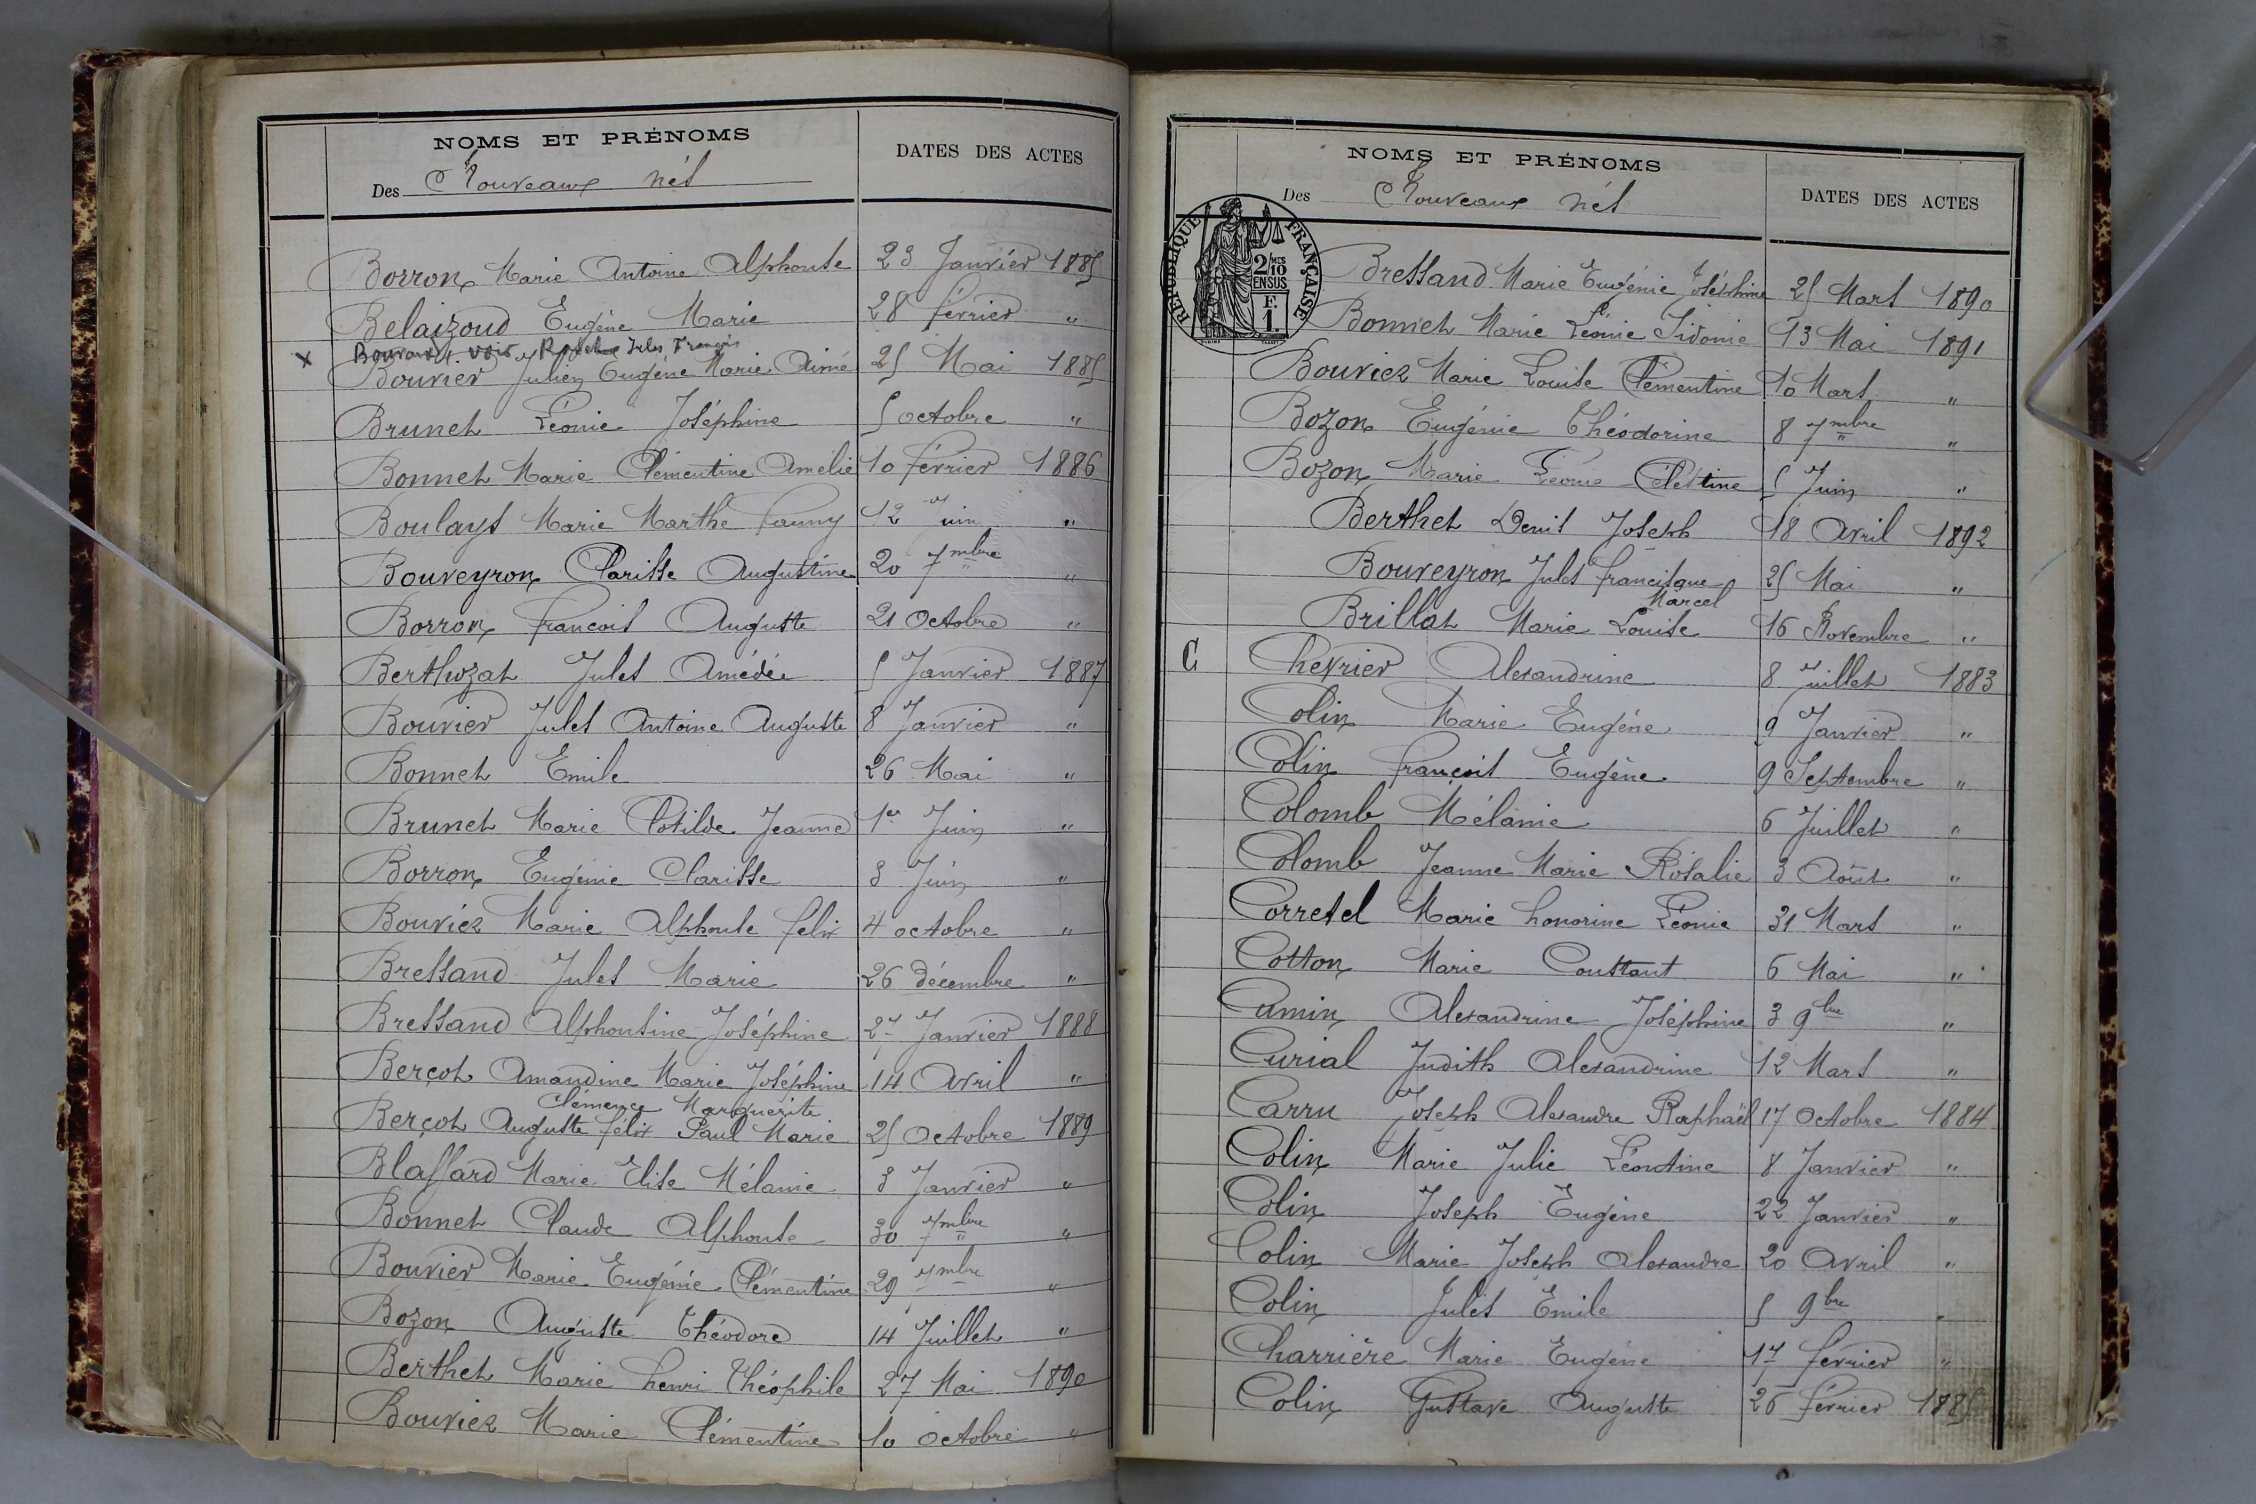 NOMS ET PRÉNOMS
DATES DES ACTES
Des Nouveaux nés
Borron Marie Antoine Alphonse 23 Janvier 1885
Belaizoud Eugène Marie 28 février "
x Bouvard. voir Jules François
Bouvier Julien Eugène Marie Aimé 25 Mai 1885
Brunet Léonie Joséphine 5 octobre "
Bonnet Marie Clémentine Amélie 10 février 1886
Boulays Marie Marthe Fanny 12 Juin "
Bouveyron Clarisse Augustine 20 7mbre "
Borron François Auguste 21 Octobre "
Berthozat Jules Amédée 5 Janvier 1887
Bouvier Jules Antoine Auguste 8 Janvier "
Bonnet Emile 26 Mai "
Brunet Marie Clotilde Jeanne 1er Juin "
Borron Eugénie Clarisse 3 Juin "
Bouviez Marie Alphonse félix 4 octobre "
Bressand Jules Marie 26 décembre "
Bressand Alphonsine Joséphine 27 Janvier 1888
Berçot Amandine Marie Joséphine 14 Avril "
Clémence Marguerite
Berçot Auguste félix Paul Marie 25 Octobre 1889
Blaffard Marie Elise Mélanie 3 Janvier "
Bonnet Claude Alphonse 30 7mbre "
Bouvier Marie Eugénie Clémentine 29 7mbre "
Bozon Auguste Théodore 14 Juillet "
Berthet Marie henri Théophile 27 Mai 1890
Bouviez Marie Clémentine 10 Octobre "
NOMS ET PRÉNOMS
DATES DES ACTES
Des Nouveaux nés
RÉPUBLIQUE FRANÇAISE
2/10
MES
EN SUS
F.
1.
Bressand Marie Eugénie Joséphine 25 Mars 1890
Bonnet Marie Léonie Sidonie 13 Mai 1891
Bouviez Marie Louise Clémentine 10 Mars "
Bozon Eugénie Théodorine 8 7mbre "
Bozon Marie Léonie Célestine 5 Juin "
Berthet Denis Joseph 18 Avril 1892
Bouveyron Jules francisque 25 Mai "
Marcel
Brillat Marie Louise 16 Novembre "
C Chevrier Alexandrine 8 Juillet 1883
Colin Marie Eugène 9 Janvier "
Colin françois Eugène 9 Septembre "
Colomb Mélanie 6 Juillet "
Colomb Jeanne Marie Rosalie 3 Août "
Corretel Marie honorine Léonie 31 Mars "
Cotton Marie Constant 6 Mai "
Cumin Alexandrine Joséphine 3 9bre "
Curial Judith Alexandrine 12 Mars "
Carru Joseph Alexandre Raphaël 17 Octobre 1884
Colin Marie Julie Léontine 8 Janvier "
Colin Joseph Eugène 22 Janvier "
Colin Marie Joseph Alexandre 20 Avril "
Colin Jules Emile 5 9bre "
Charrière Marie Eugène 17 février "
Colin Gustave Auguste 26 février 1885